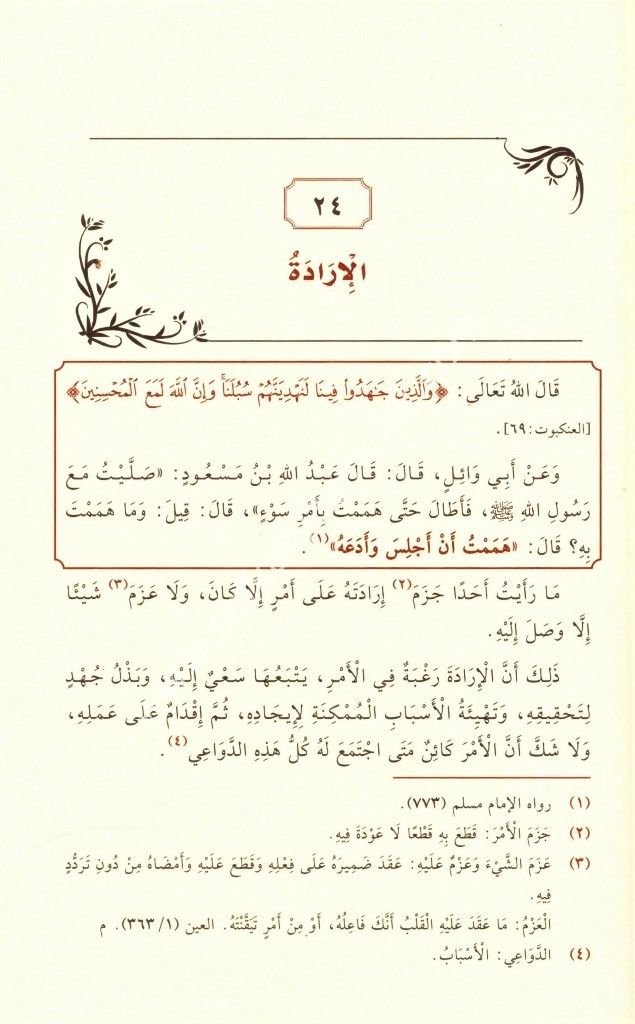 ٢٤
الإِرَادَةُ
قَالَ اللهُ تَعَالَى: ﴿وَٱلَّذِينَ جَٰهَدُواْ فِينَا لَنَهۡدِيَنَّهُمۡ سُبُلَنَاۚ وَإِنَّ ٱللَّهَ لَمَعَ ٱلۡمُحۡسِنِينَ﴾
[العنكبوت: ٦٩].
وَعَنْ أَبِي وَائِلٍ، قَالَ: قَالَ عَبْدُ اللهِ بْنُ مَسْعُودٍ: «صَلَّيْتُ مَعَ
رَسُولِ اللهِ ﷺ، فَأَطَالَ حَتَّى هَمَمْتُ بِأَمْرِ سَوْءٍ»، قَالَ: قِيلَ: وَمَا هَمَمْتَ
بِهِ؟ قَالَ: «هَمَمْتُ أَنْ أَجْلِسَ وَأَدَعَهُ»(١).
مَا رَأَيْتُ أَحَدًا جَزَمَ(٢) إِرَادَتَهُ عَلَى أَمْرٍ إِلَّا كَانَ، وَلَا عَزَمَ(٣) شَيْئًا
إِلَّا وَصَلَ إِلَيْهِ.
ذَلِكَ أَنَّ الْإِرَادَةَ رَغْبَةٌ فِي الْأَمْرِ، يَتْبَعُهَا سَعْيٌ إِلَيْهِ، وَبَذْلُ جُهْدٍ
لِتَحْقِيقِهِ، وَتَهْيِئَةُ الْأَسْبَابِ الْمُمْكِنَةِ لِإِيجَادِهِ، ثُمَّ إِقْدَامٌ عَلَى عَمَلِهِ،
وَلَا شَكَّ أَنَّ الْأَمْرَ كَائِنٌ مَتَى اجْتَمَعَ لَهُ كُلُّ هَذِهِ الدَّوَاعِي(٤).
(١) رواه الإمام مسلم (٧٧٣).
(٢) جَزَمَ الْأَمْرَ: قَطَعَ بِهِ قَطْعًا لَا عَوْدَةَ فِيهِ.
(٣) عَزَمَ الشَّيْءَ وَعَزْمٌ عَلَيْهِ: عَقَدَ ضَمِيرَهُ عَلَى فِعْلِهِ وَقَطَعَ عَلَيْهِ وَأَمْضَاهُ مِنْ دُونِ تَرَدُّدٍ
فِيهِ.
الْعَزْمُ: مَا عَقَدَ عَلَيْهِ الْقَلْبُ أَنَّكَ فَاعِلُهُ، أَوْ مِنْ أَمْرٍ تَيَقَّنْتَهُ. العين (١/ ٣٦٣). م
(٤) الدَّوَاعِي: الْأَسْبَابُ.